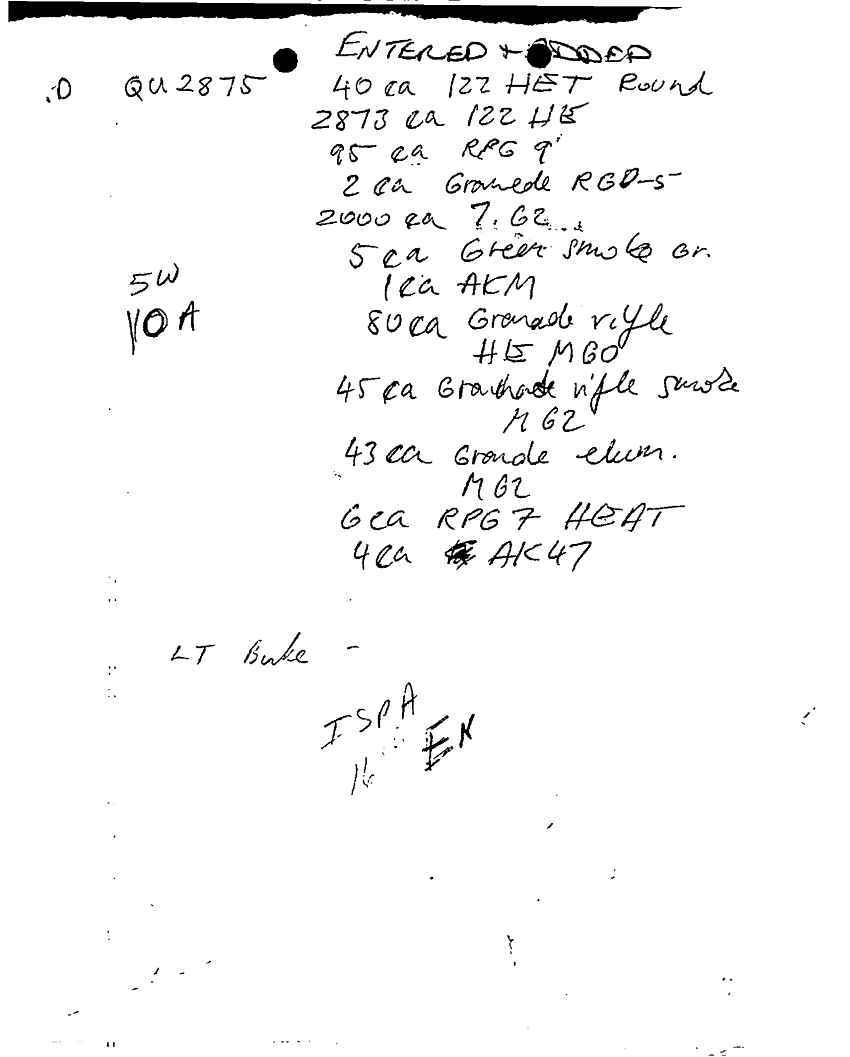 ENTERED + ADDED
.D QU2875 40 ea 122 HET Round
2873 ea 122 HE
95 ea RPG 9
2 ea Granede RGD-5
2000 ea 7.62
5 ea Green smoke Gr.
5W
1 ea AKM
10A
80 ea Granade rifle
HE M60
45 ea Granade rifle smoke
M62
43 ea Grande elum.
M62
6 ea RPG 7 HEAT
4 ea AK47
LT Burke -
ISPA
EN
16